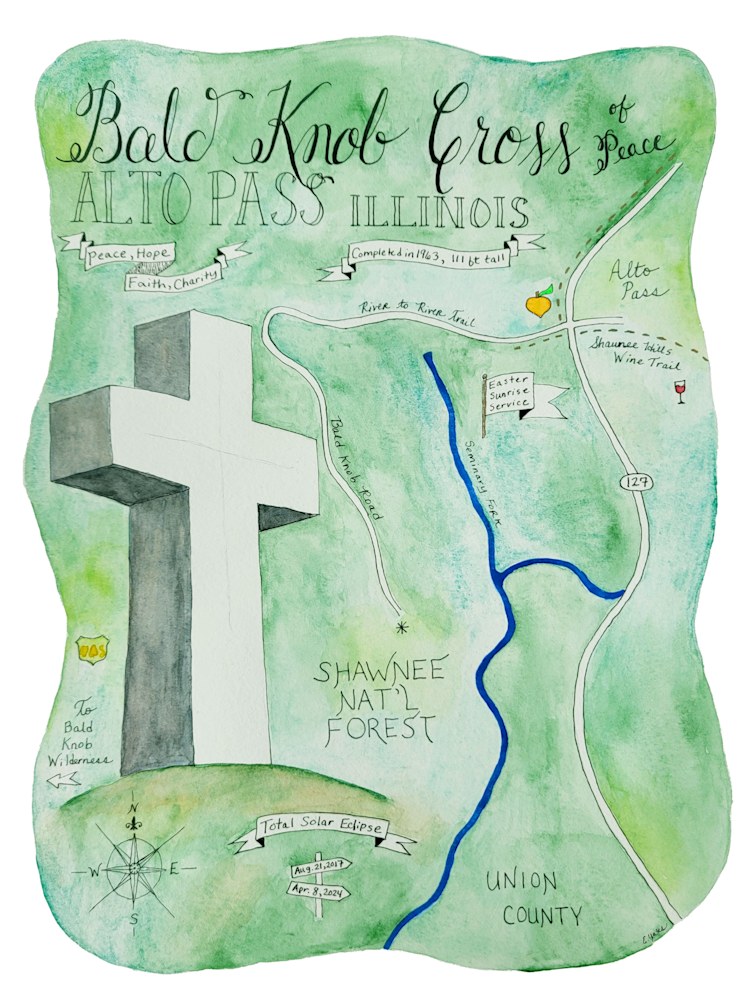 Bald Knob Cross of Peace
ALTO PASS ILLINOIS
Peace, Hope
Faith, Charity
Completed in 1963, 111 ft tall
River to River Trail
Alto
Pass
Shaunee Hills
Wine Trail
Easter
Sunrise
Service
Bald Knob Road
Seminary Fork
127
SHAWNEE
NAT'L
FOREST
To
Bald
Knob
Wilderness
N
W
E
S
Total Solar Eclipse
Aug. 21, 2017
Apr. 8, 2024
UNION
COUNTY